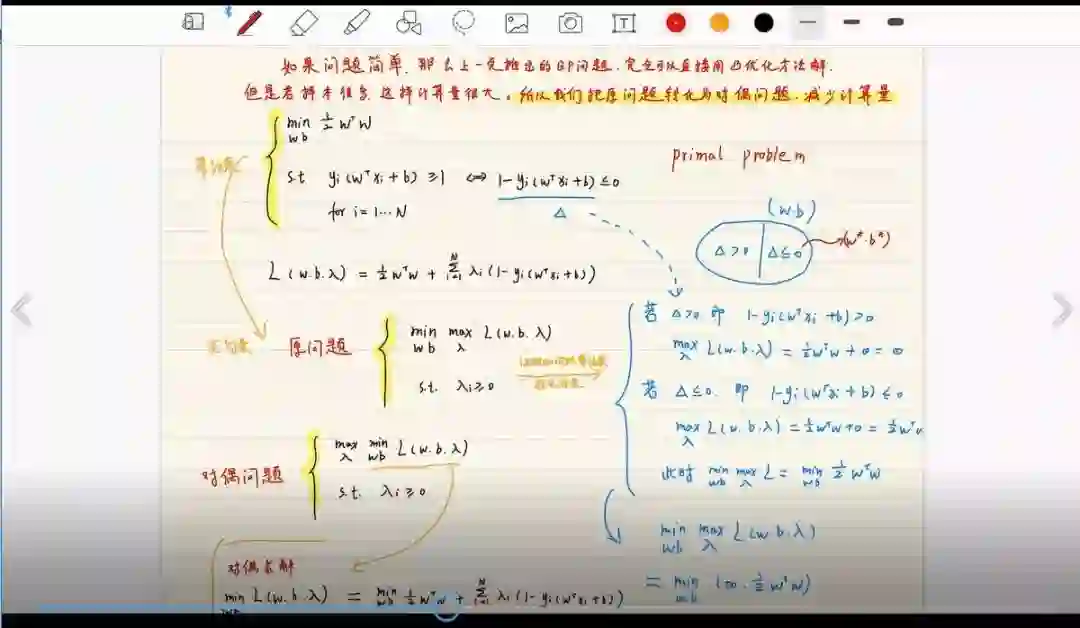 如果问题简单，那么上一页推出的QP问题，完全可以直接用凸优化方法解.
但是若样本很多，这样计算量很大，所以我们把原问题转化为对偶问题，减少计算量
min 1/2 wᵀw
w b
s.t yi(wᵀxi+b) ≥1 ⟺ 1-yi(wᵀxi+b) ≤0
for i=1...N
Δ
primal problem
(w.b)
Δ>0 Δ≤0
(w*.b*)
L(w.b.λ) = 1/2 wᵀw + Σ_{i=1}^{N} λi(1-yi(wᵀxi+b))
原问题
min max L(w.b.λ)
wb λ
s.t. λi≥0
若 Δ>0 即 1-yi(wᵀxi+b)>0
max L(w.b.λ) = 1/2 wᵀw + ∞ = ∞
λ
若 Δ≤0. 即 1-yi(wᵀxi+b) ≤0
max L(w.b.λ) = 1/2 wᵀw+0 = 1/2 wᵀw
λ
此时 min max L = min 1/2 wᵀw
wb λ wb
对偶问题
max min L(w.b.λ)
λ wb
s.t. λi≥0
min max L(w.b.λ)
wb λ
= min (∞. 1/2 wᵀw)
wb
对偶求解
min L(w.b.λ) = min 1/2 wᵀw + Σ_{i=1}^{N} λi(1-yi(wᵀxi+b))
wb wb